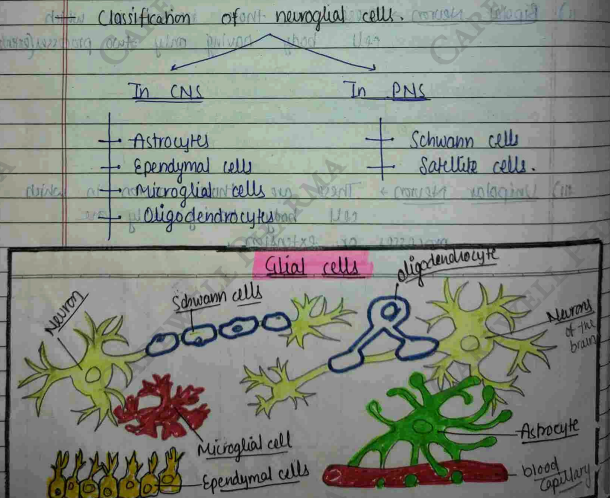 Classification of neuroglial cells.
In CNS
In PNS
Astrocytes
Ependymal cells
Microglial cells
Oligodendrocytes
Schwann cells
Satellite cells.
Glial cells
Neuron
Schwann cells
Oligodendrocyte
Neurons
of the
brain
Microglial cell
Ependymal cells
Astrocyte
blood
Capillary